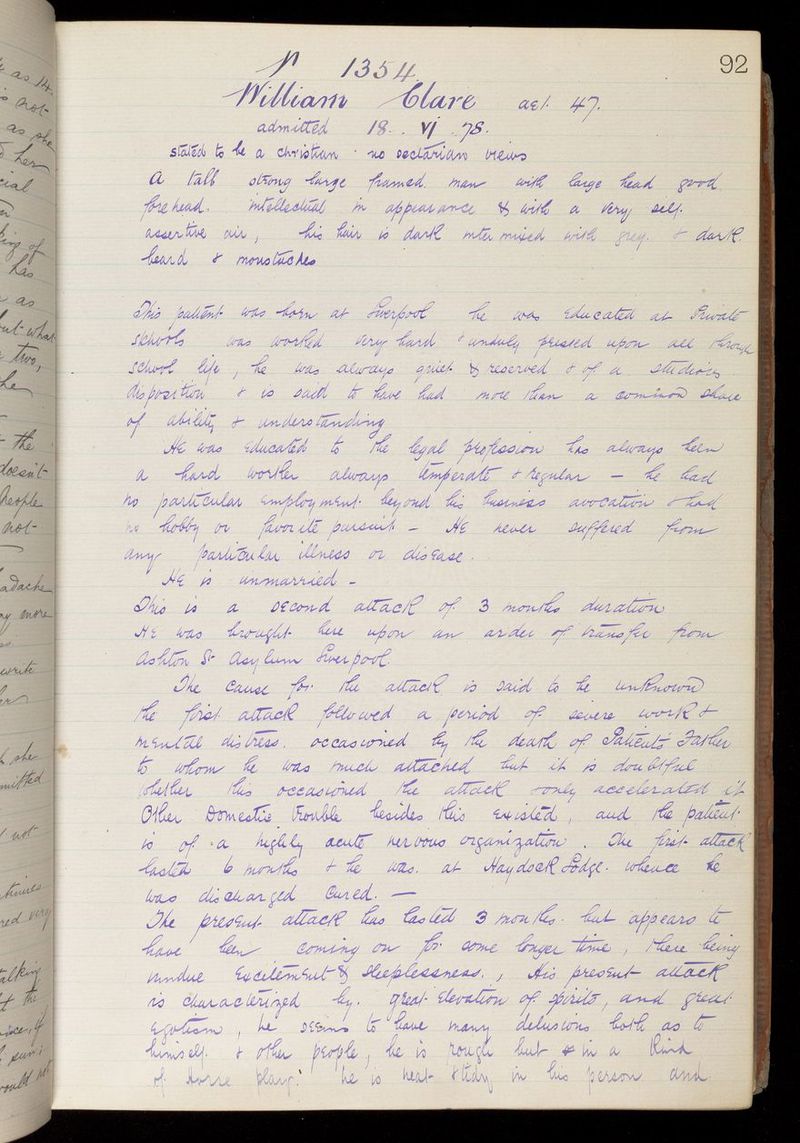 92
N 1354.
William Clare aet. 47.
admitted 18. vj. 78.
stated to be a christian. no sectarian views
A tall strong large framed man with large head good
forehead. intellectual in appearance & with a very self.
assertive air, his hair is dark inter mixed with grey. & dark.
beard & moustaches
This patient was born at Liverpool he was Educated at Private
schools was worked very hard & unduly pressed upon all through
school life, he was always quiet & reserved & of a studious
disposition & is said to have had more than a common share
of ability & understanding
He was Educated to the legal profession has always been
a hard worker always temperate & regular – he had
no particular Employment beyond his business avocation & had
no hobby or favorite pursuit – He never suffered from
any particular illness or disease.
He is unmarried –
This is a second attack of 3 months duration
He was brought here upon an order of transfer from
Ashton St Asylum Liverpool.
The cause for the attack is said to be unknown
the first attack followed a period of severe work &
mental distress. occasioned by the death of Patients Father
to whom he was much attached but it is doubtful
whether this occasioned the attack or only accelerated it
Other Domestic trouble besides this Existed, and the patient
is of a highly acute nervous organization. The first attack
lasted 6 months & he was. at Haydock Lodge. whence he
was discharged Cured. –
The present attack has lasted 3 months. but appears to
have been coming on for some longer time, there being
undue Excitement & sleeplessness., His present attack
is characterized by. great Elevation of spirits, and great
Egotism, he seems to have many delusions both as to
himself. & other people, he is rough but in a kind
of Horse play.' he is neat & tidy in his person and